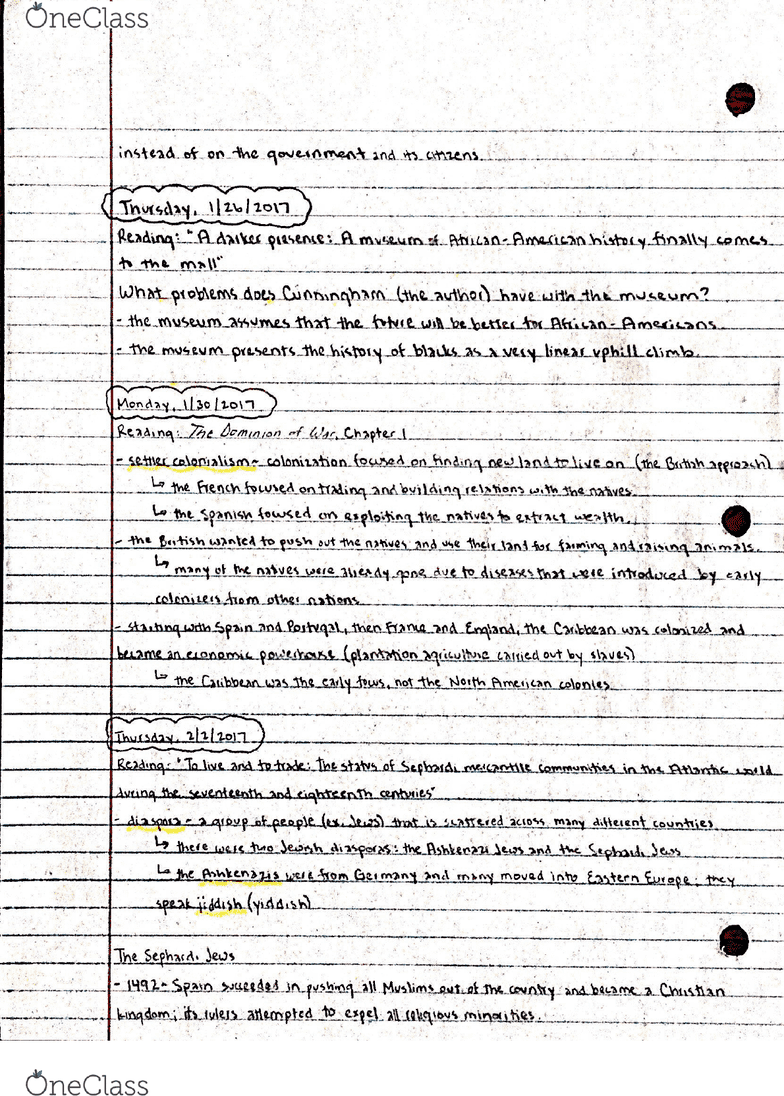 OneClass
instead of on the government and its citizens.
Thursday, 1/26/2017
Reading: "A darker presence: A museum of African-American history finally comes
to the mall"
What problems does Cunningham (the author) have with the museum?
- the museum assumes that the future will be better for African-Americans.
- the museum presents the history of blacks as a very linear uphill climb.
Monday, 1/30/2017
Reading: The Dominion of War, Chapter 1
- settler colonialism - colonization focused on finding new land to live on (the British approach)
↳ the French focused on trading and building relations with the natives.
↳ the Spanish focused on exploiting the natives to extract wealth.
- the British wanted to push out the natives and use their land for farming and raising animals.
↳ many of the natives were already gone due to diseases that were introduced by early
colonizers from other nations
- starting with Spain and Portugal, then France and England, the Caribbean was colonized and
became an economic powerhouse (plantation agriculture carried out by slaves)
↳ the Caribbean was the early focus, not the North American colonies
Thursday, 2/2/2017
Reading: "To live and to trade: The status of Sephardi mercantile communities in the Atlantic world
during the seventeenth and eighteenth centuries"
- diaspora - a group of people (ex. Jews) that is scattered across many different countries
↳ there were two Jewish diasporas: the Ashkenazi Jews and the Sephardi Jews
↳ the Ashkenazis were from Germany and many moved into Eastern Europe; they
speak jiddish (yiddish)
The Sephardi Jews
- 1492 - Spain succeeded in pushing all Muslims out of the country and became a Christian
kingdom; its rulers attempted to expel all religious minorities.
OneClass